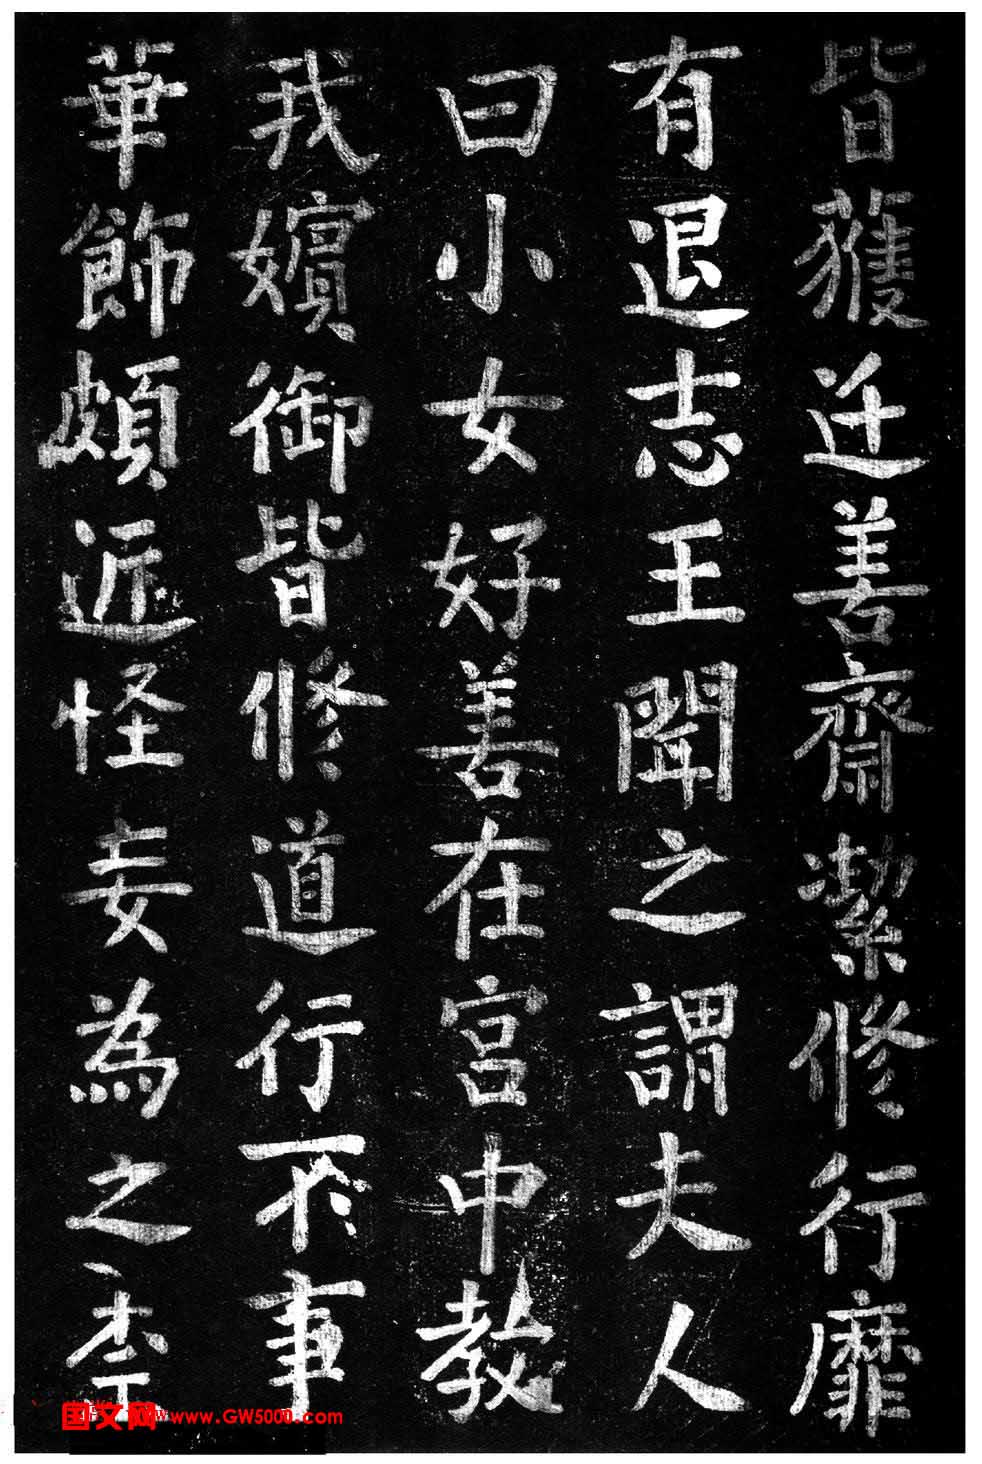 皆獲迁善齋潔修行靡
有退志王聞之謂夫人
曰小女好善在宮中教
我嬪御皆修道行不事
華飾頗近怪妄為之柰
国文网www.GW5000.com